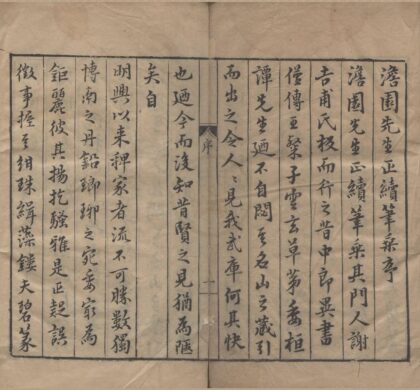 澹園先生正續筆乘序
澹園先生正續筆乘其門人謝
吉甫氏板而行之昔中郎異書
僅傳王粲子雲玄草第委桓
譚先生廼不自閟其名山之藏引
而出之令人〻見我武庫何其快
序
一
也廼今而後知昔賢之見猶為陋
矣自
明興以來稗家者流不可勝數獨
博南之丹鉛瑯琊之宛委最為
鉅麗彼其揚扢騷雅是正誤
徵事紺珠緝藻鏤天碧篆